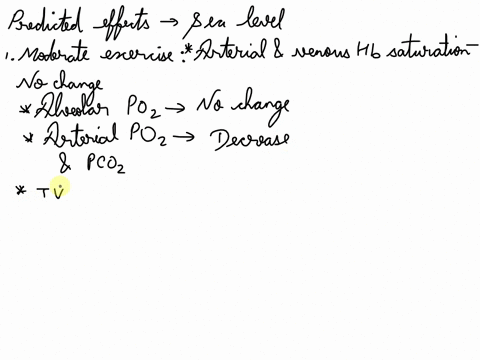 Predicted effects → Sea level
1. Moderate exercise : * Arterial & venous Hb saturation -
No change
* Alveolar PO2 → No change
* Arterial PO2 → Decrease
& PCO2
* TV